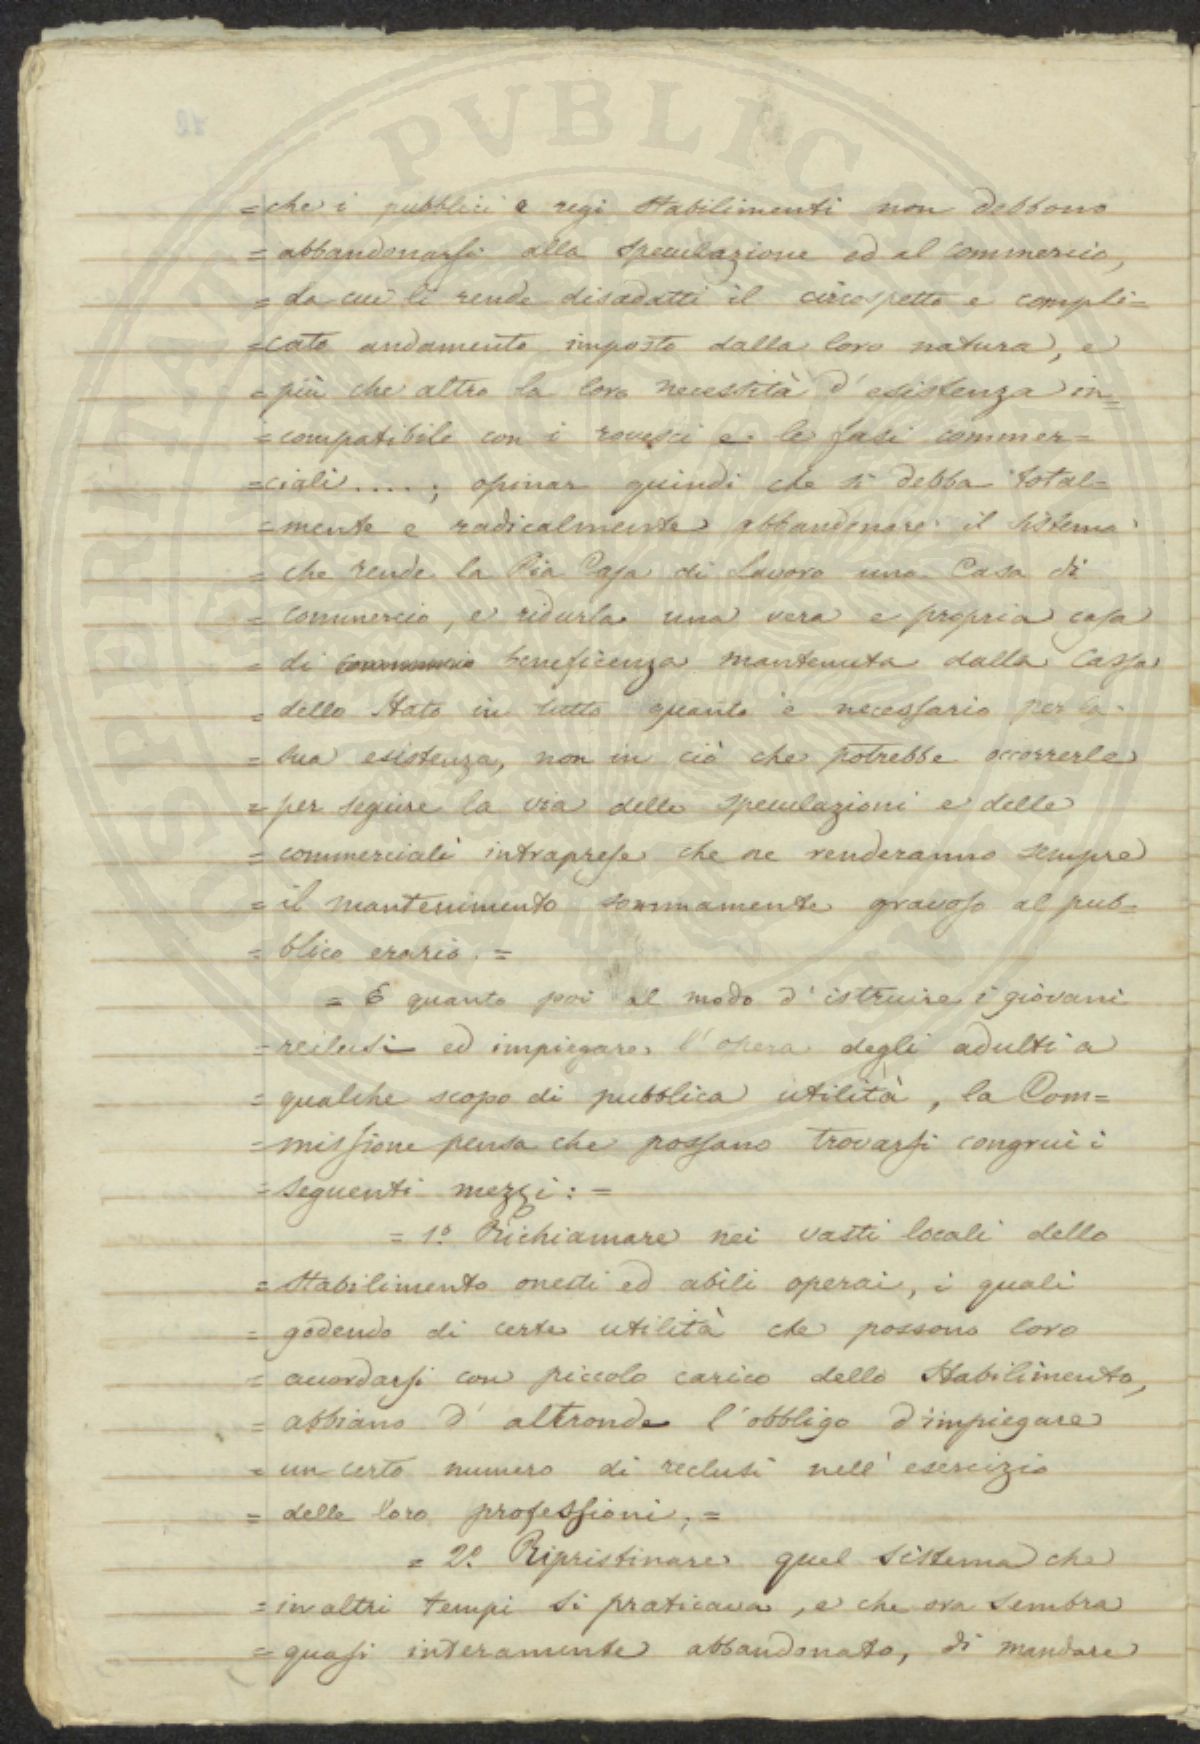 =che i pubblici e regi Stabilimenti non debbono
=abbandonarsi alla speculazione ed al commercio,
=da cui li rende disadatti il circospetto e compli=
=cato andamento imposto dalla loro natura, e
=più che altro la loro necessità d'esistenza in=
=compatibile con i rovesci e le fasi commer=
=ciali....; opinar quindi che si debba total=
=mente e radicalmente abbandonare il sistema
=che rende la Pia Casa di Lavoro una Casa di
=commercio, e ridurla una vera e propria casa
=di commercio beneficenza mantenuta dalla Cassa
=dello Stato in tutto quanto è necessario per la
=sua esistenza, non in ciò che potrebbe occorrerle
=per seguire la via delle speculazioni e delle
=commerciali intraprese che ne renderanno sempre
=il mantenimento sommamente gravoso al pub=
=blico erario.=
=E quanto poi al modo d'istruire i giovani
=reclusi ed impiegare l'opera degli adulti a
=qualche scopo di pubblica utilità, la Com=
=missione pensa che possano trovarsi congrui i
=seguenti mezzi:=
=1.° Richiamare nei vasti locali dello
=Stabilimento onesti ed abili operai, i quali
=godendo di certe utilità che possono loro
=accordarsi con piccolo carico dello Stabilimento,
=abbiano d'altronde l'obbligo d'impiegare
=un certo numero di reclusi nell'esercizio
=delle loro professioni;=
=2.° Ripristinare quel sistema che
=in altri tempi si praticava, e che ora sembra
=quasi interamente abbandonato, di mandare